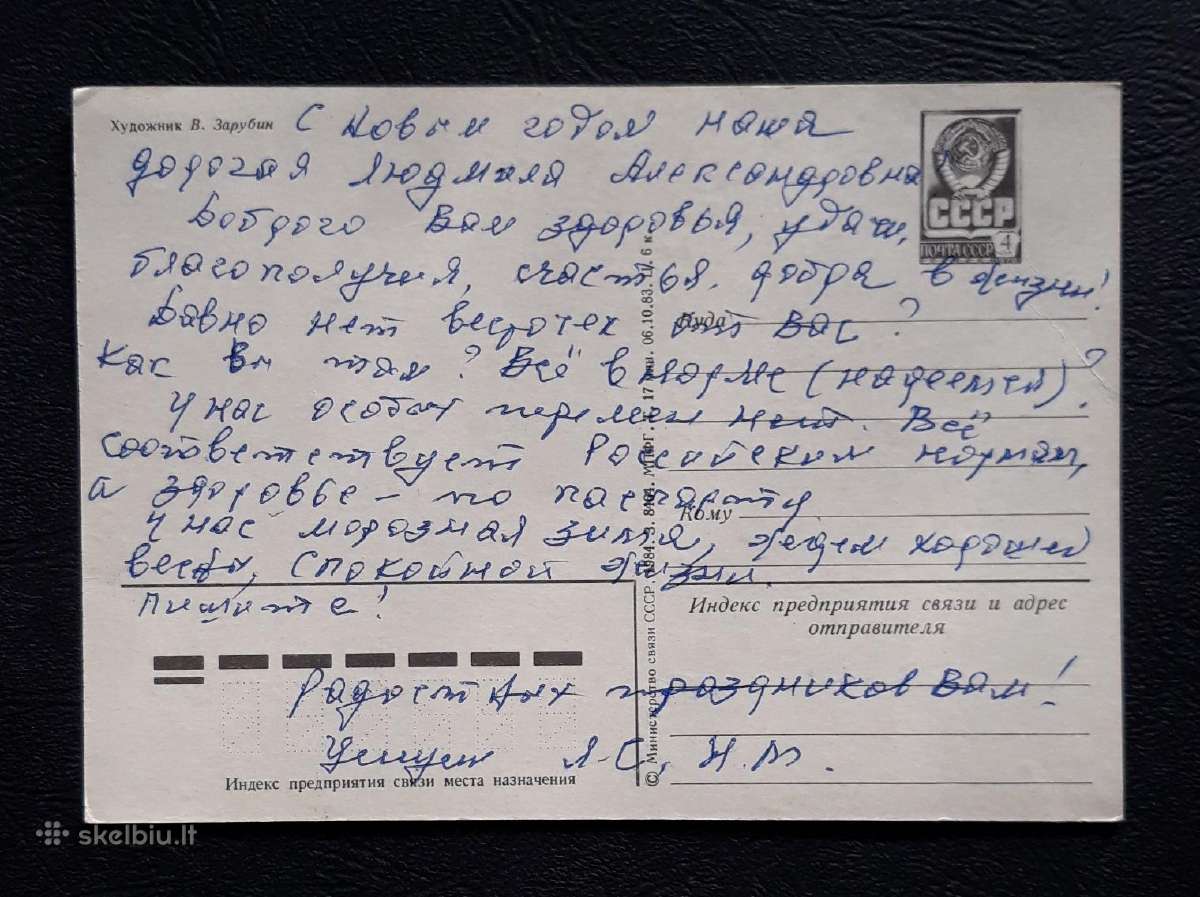 Художник В. Зарубин
С Новым годом наша
дорогая Людмила Александровна!
Доброго Вам здоровья, удачи,
благополучия, счастья, добра в жизни!
Давно нет весточек от Вас?
Как Вы там? Всё в норме (надеемся)?
У нас особых перемен нет. Всё
соответствует Российским нормам,
а здоровье - по паспорту
У нас морозная зима, ждём хорошей
весны, спокойной жизни.
Пишите!
Радостных праздников Вам!
Л.С, Н.М.
СССР
ПОЧТА СССР 4
Куда
Кому
Индекс предприятия связи и адрес
отправителя
Индекс предприятия связи места назначения
© Министерство связи СССР, 1984. З. 06.10.83. Ц. 6 к.
skelbiu.lt